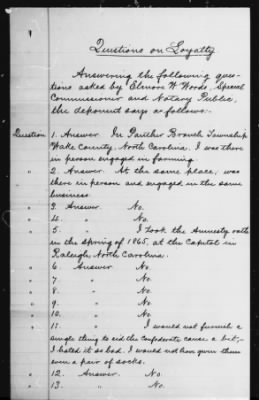 Questions on Loyalty
Answering the following ques-
tions asked by Elmore W Woods, Special
Commissioner and Notary Public,
the deponent says as follows:-
Question 1. Answer. In Panther Branch Township
Wake County, North Carolina. I was there
in person engaged in farming.
" 2. Answer. At the same place, was
there in person and engaged in the same
business.
" 3. Answer. No.
" 4. " No.
" 5. " I took the Amnesty oath
in the Spring of 1865, at the Capitol in
Raleigh, North Carolina.
" 6. Answer. No.
" 7 " No.
" 8 " No.
" 9. " No.
" 10. " No.
" 11. " I would not furnish a
single thing to aid the Confederate cause a bit,-
I hated it so bad. I would not have given them
even a pair of socks.
" 12. Answer. No.
" 13. " No.